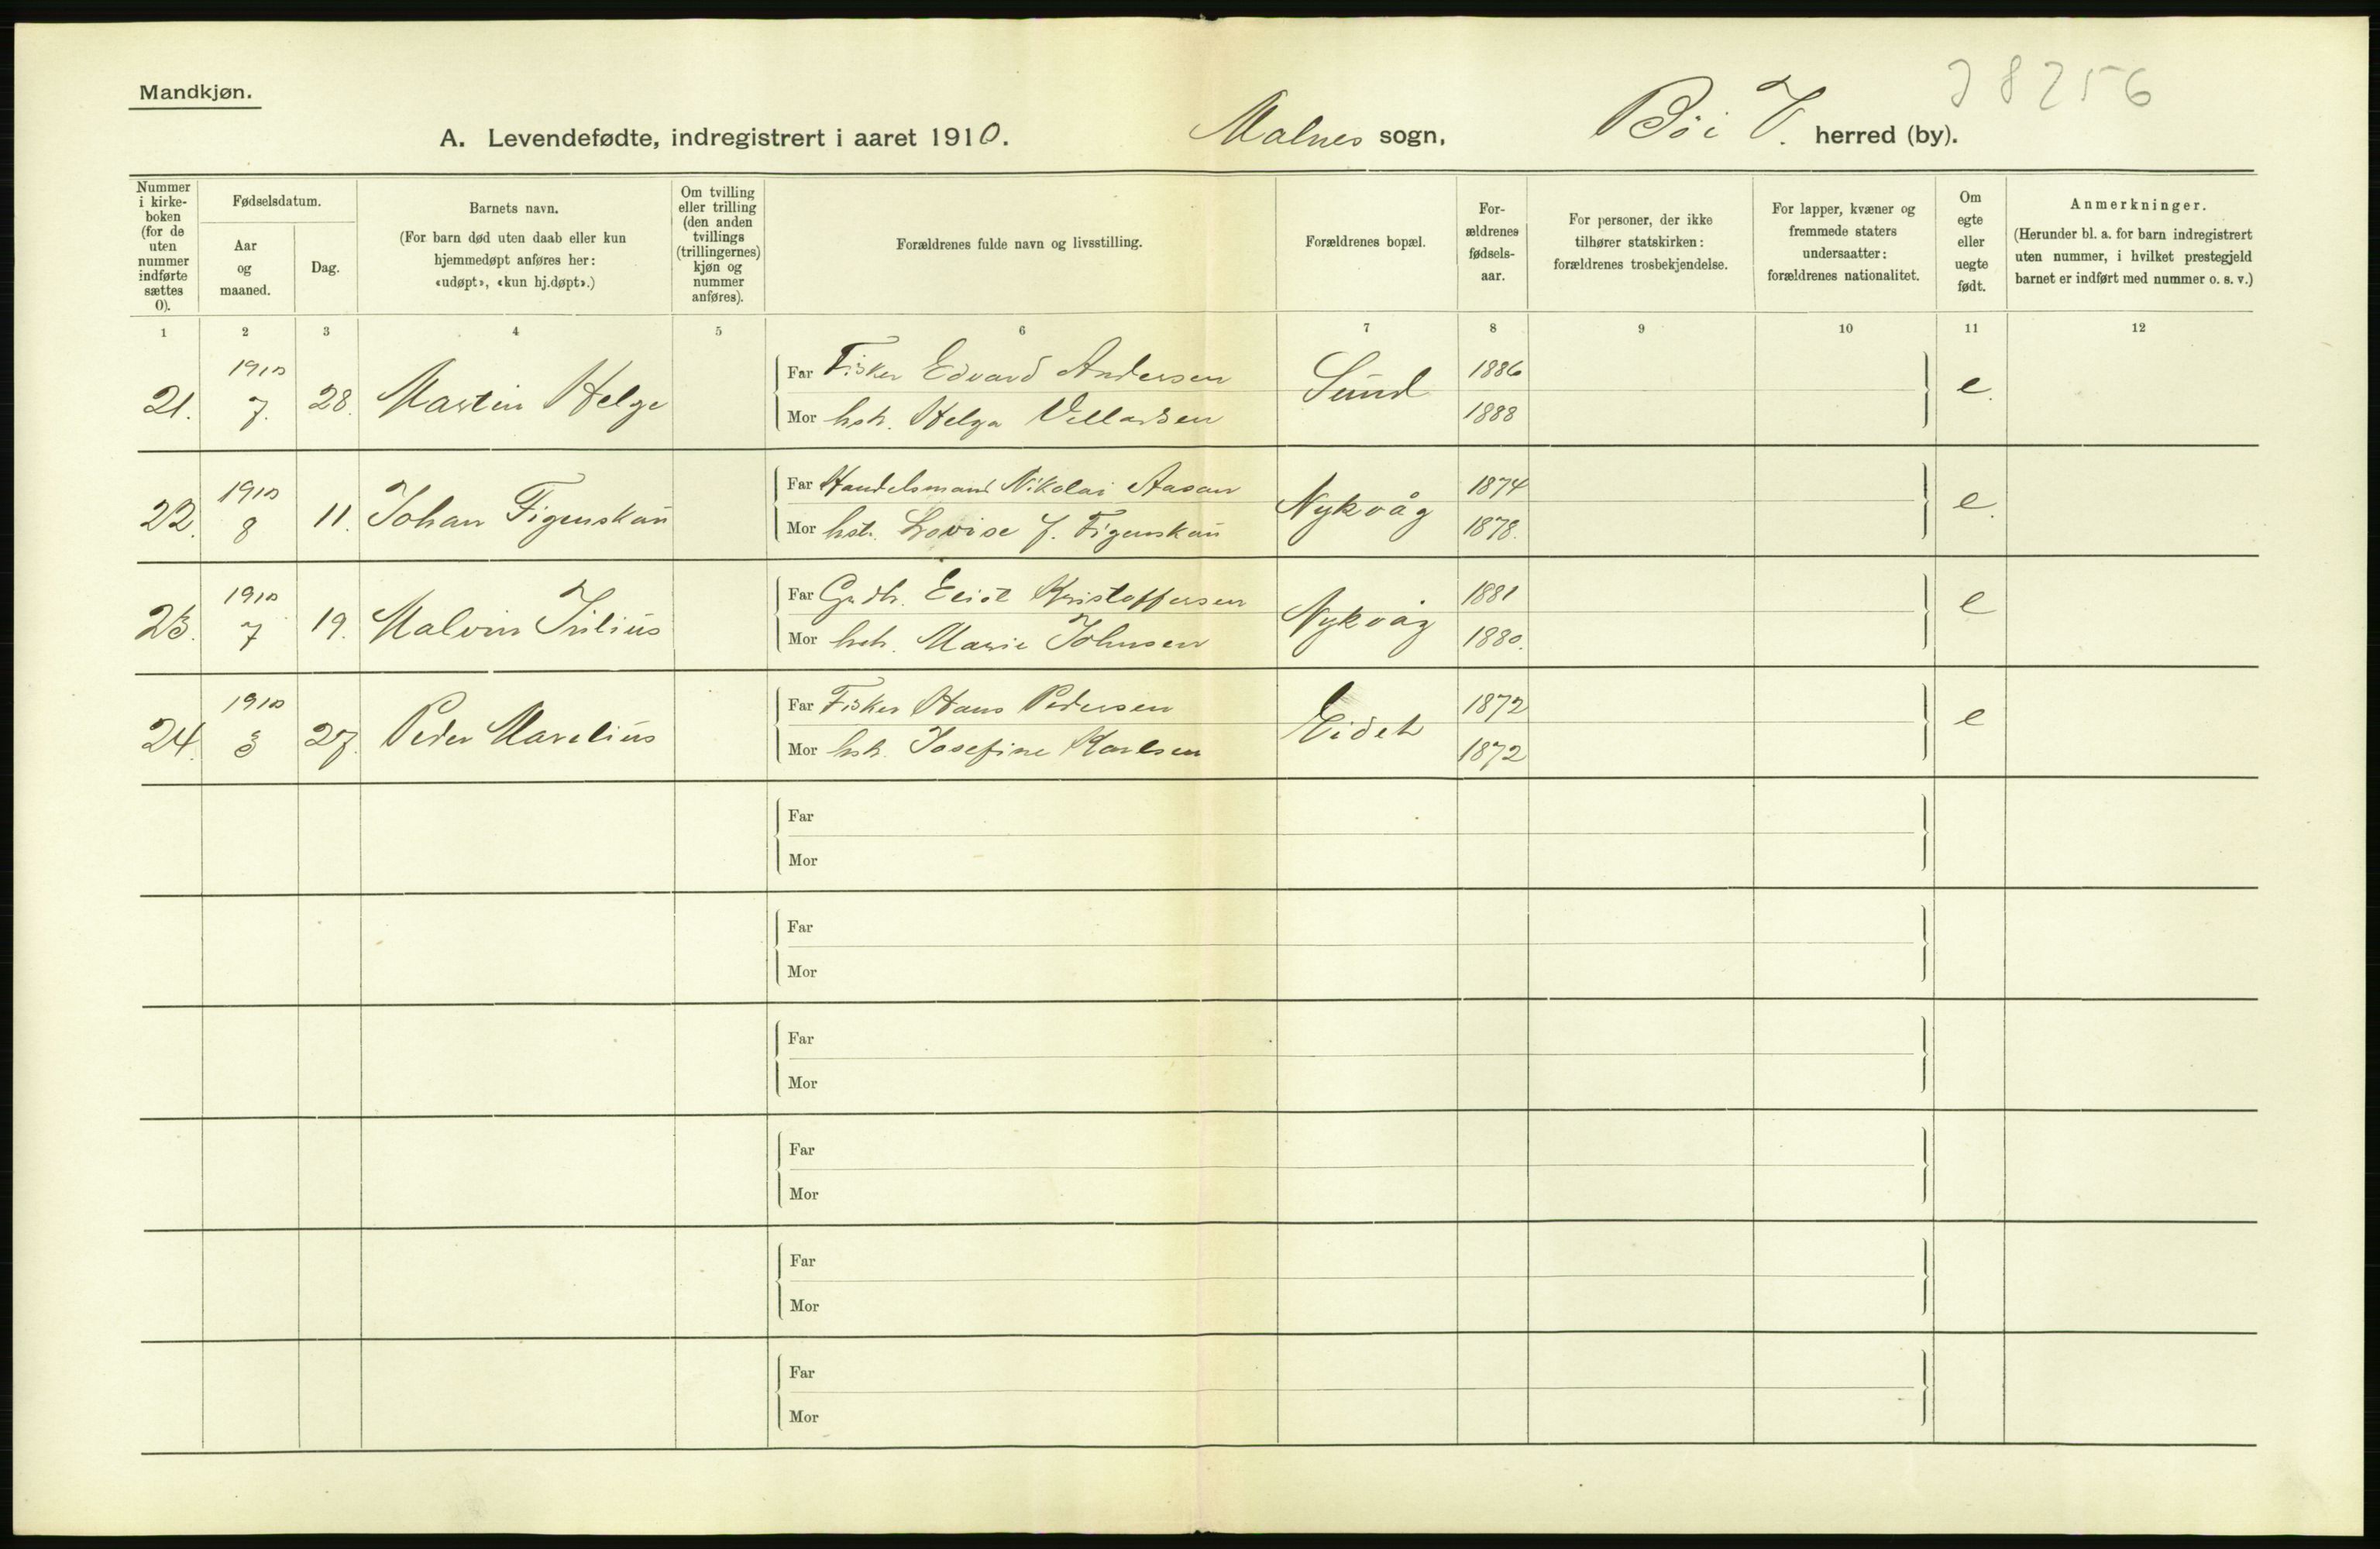 38256
Mandkjøn.
A. Levendefødte, indregistrert i aaret 1910. Malnes sogn, Bö i V. herred (by).
Nummer i kirke-boken (for de uten nummer indførte sættes 0).
Fødselsdatum.
Aar og maaned.
Dag.
Barnets navn.
(For barn død uten daab eller kun hjemmedøpt anføres her: «udøpt», «kun hj.døpt».)
Om tvilling eller trilling (den anden tvillings (trillingernes) kjøn og nummer anføres).
Forældrenes fulde navn og livsstilling.
Forældrenes bopæl.
For-ældrenes fødsels-aar.
For personer, der ikke tilhører statskirken: forældrenes trosbekjendelse.
For lapper, kvæner og fremmede staters undersaatter: forældrenes nationalitet.
Om egte eller uegte født.
Anmerkninger.
(Herunder bl. a. for barn indregistrert uten nummer, i hvilket prestegjeld barnet er indført med nummer o. s. v.)
1 2 3 4 5 6 7 8 9 10 11 12
21. 1910 7. 28. Martin Helge Far Fisker Edvard Andersen Sund 1886 e.
Mor hstr. Helga Villadsen 1888
22. 1910 8 11. Johan Figenskau Far Handelsmand Nikolai Aasan Nykvåg 1874 e.
Mor hstr. Lovise J. Figenskau 1878.
23. 1910 7 19. Malvin Julius Far Grdbr. Kristoffersen Nykvåg 1881 e
Mor hstr. Marie Johnsen 1880.
24. 1910 3 27. Peder Marelius Far Fisker Hans Pedersen Eidet 1872 e
Mor hstr. Josefine Karlsen 1872
Far
Mor
Far
Mor
Far
Mor
Far
Mor
Far
Mor
Far
Mor